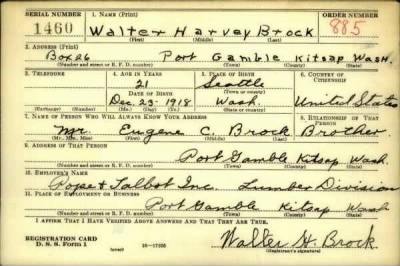 SERIAL NUMBER 1. NAME (Print) ORDER NUMBER
1460 Walter Harvey Brock 885
(First) (Middle) (Last)
2. ADDRESS (Print)
Box 26 Port Gamble Kitsap Wash.
(Number and street or R. F. D. number) (Town) (County) (State)
3. TELEPHONE 4. AGE IN YEARS 5. PLACE OF BIRTH 6. COUNTRY OF CITIZENSHIP
21 Seattle
DATE OF BIRTH (Town or county)
Dec. 25. 1918 Wash. United States
(Exchange) (Number) (Mo.) (Day) (Yr.) (State or country)
7. NAME OF PERSON WHO WILL ALWAYS KNOW YOUR ADDRESS 8. RELATIONSHIP OF THAT PERSON
Mr. Eugene C. Brock Brother
(Mr., Mrs., Miss) (First) (Middle) (Last)
9. ADDRESS OF THAT PERSON
Port Gamble Kitsap Wash.
(Number and street or R. F. D. number) (Town) (County) (State)
10. EMPLOYER'S NAME
Pope & Talbot Inc. Lumber Division
11. PLACE OF EMPLOYMENT OR BUSINESS
Port Gamble Kitsap Wash
(Number and street or R. F. D. number) (Town) (County) (State)
I AFFIRM THAT I HAVE VERIFIED ABOVE ANSWERS AND THAT THEY ARE TRUE.
REGISTRATION CARD
D. S. S. Form 1 (over) 16-17105 Walter H. Brock
(Registrant's signature)